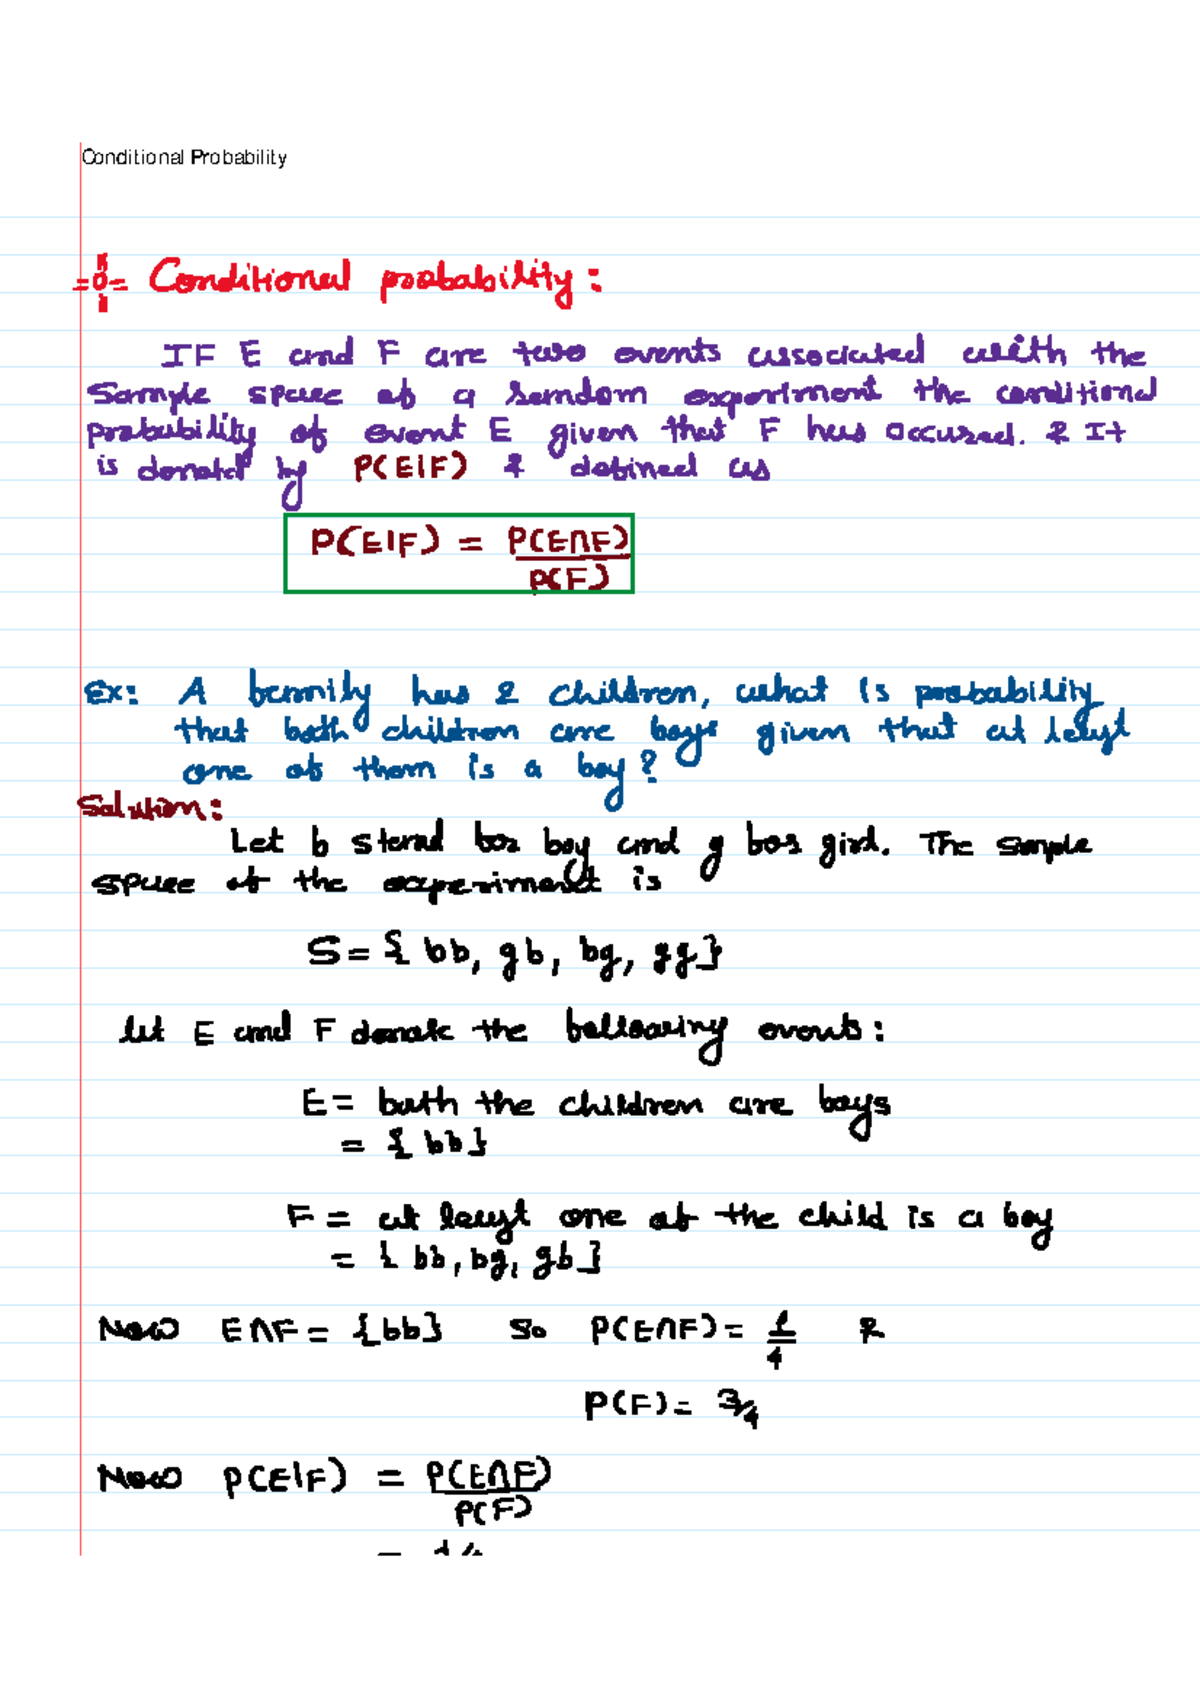 Conditional Probability
Conditional probability:
IF E and F are two events associated with the
Sample space of a random experiment the conditional
probability of event E given that F has occured. & It
is denoted by P(E|F) & defined as
P(E|F) = P(E∩F)
P(F)
Ex: A family has 2 children, what is probability
that both children are boys given that at least
one of them is a boy?
Solution:
Let b stand for boy and g for girl. The sample
space of the experiment is
S = { bb, gb, bg, gg}
let E and F denote the following events:
E = both the children are boys
= { bb}
F = at least one of the child is a boy
= { bb, bg, gb}
Now E∩F = {bb} so P(E∩F) = 1/4 &
P(F) = 3/4
Now P(E|F) = P(E∩F)
P(F)